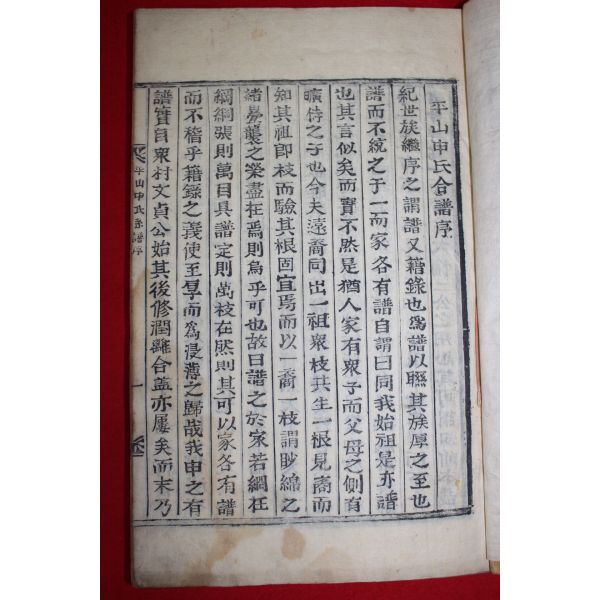 平山申氏合譜序
紀世族繼序之謂譜又籍錄也爲譜以聯其族厚之至也
譜而不統之于一而家各有譜自謂曰同我始祖是亦譜
也其言似矣而實不然是猶人家有衆子而父母之側有
曠侍之子也今夫遠裔同出一祖衆枝共生一根見裔而
知其祖卽枝而驗其根固宜焉而以一裔一枝謂眇綿之
緖夢襲之榮盡在焉則烏乎可也故曰譜之於家若綱在
網綱張則萬目具譜定則萬枝在然則其可以家各有譜
而不稽乎籍錄之義使至厚而爲浸薄之歸哉我申之有
譜實自衆村文貞公始其後修潤離合盖亦屢矣而末乃
平山申氏系譜序
一